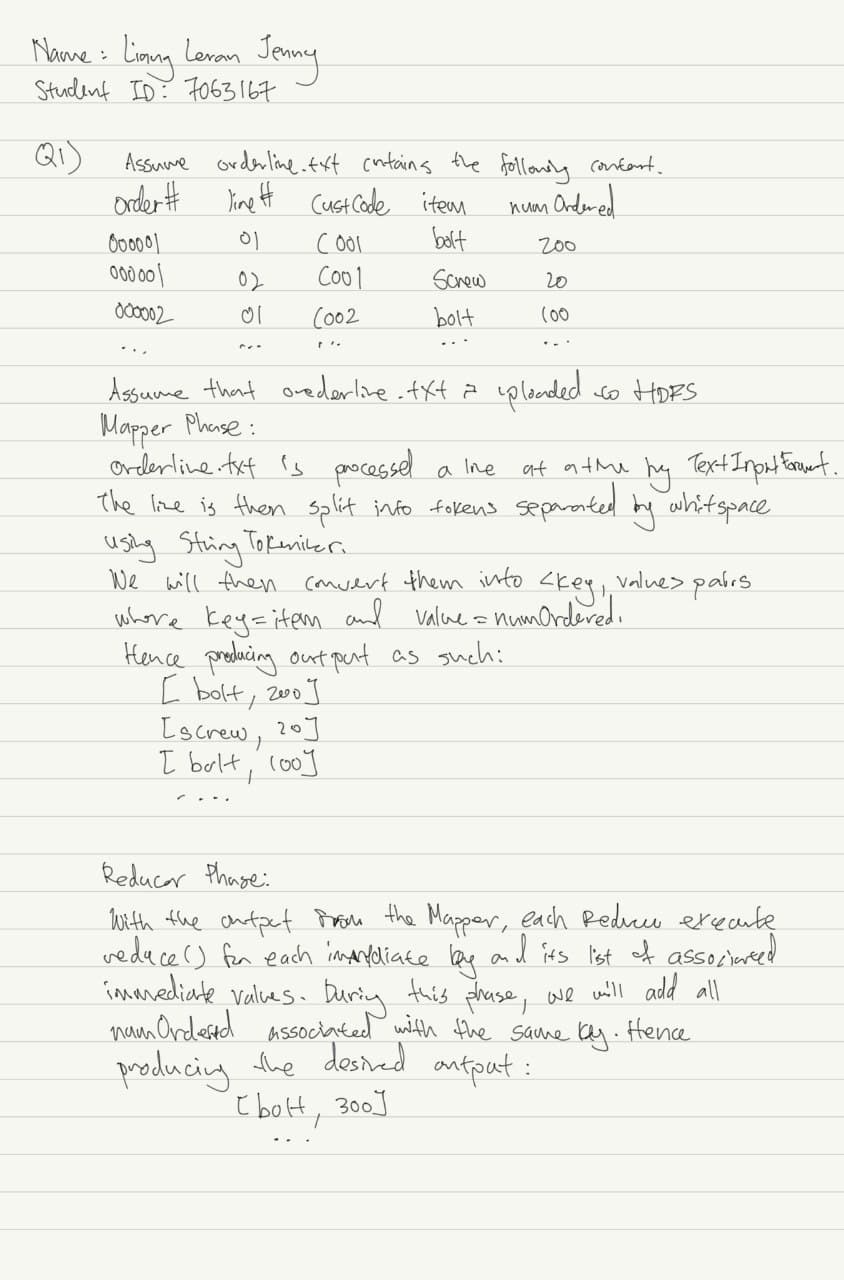 Name : Liang Leran Jenny
Student ID: 7063167
Q1) Assume orderline.txt cntains the following content.
order# line# CustCode item numOrdered
000001 01 C001 bolt 200
000001 02 C001 Screw 20
000002 01 C002 bolt 100
... ... ... ... ...
Assume that orederline.txt is uploaded to HDFS
Mapper Phase :
orderline.txt is processed a line at a time by TextInputFormat.
The line is then split into tokens separated by whitspace
using StringTokenizer.
We will then convert them into <key, value> pairs
where key=item and value = numOrdered.
Hence producing output as such:
[ bolt, 200]
[screw, 20]
[ bolt, 100]
....
Reducer Phase:
With the output from the Mapper, each Reducer execute
reduce() for each immediate key and its list of associated
immediate values. During this phase, we will add all
numOrdered associated with the same key. Hence
producing the desired output :
[bolt, 300]
...